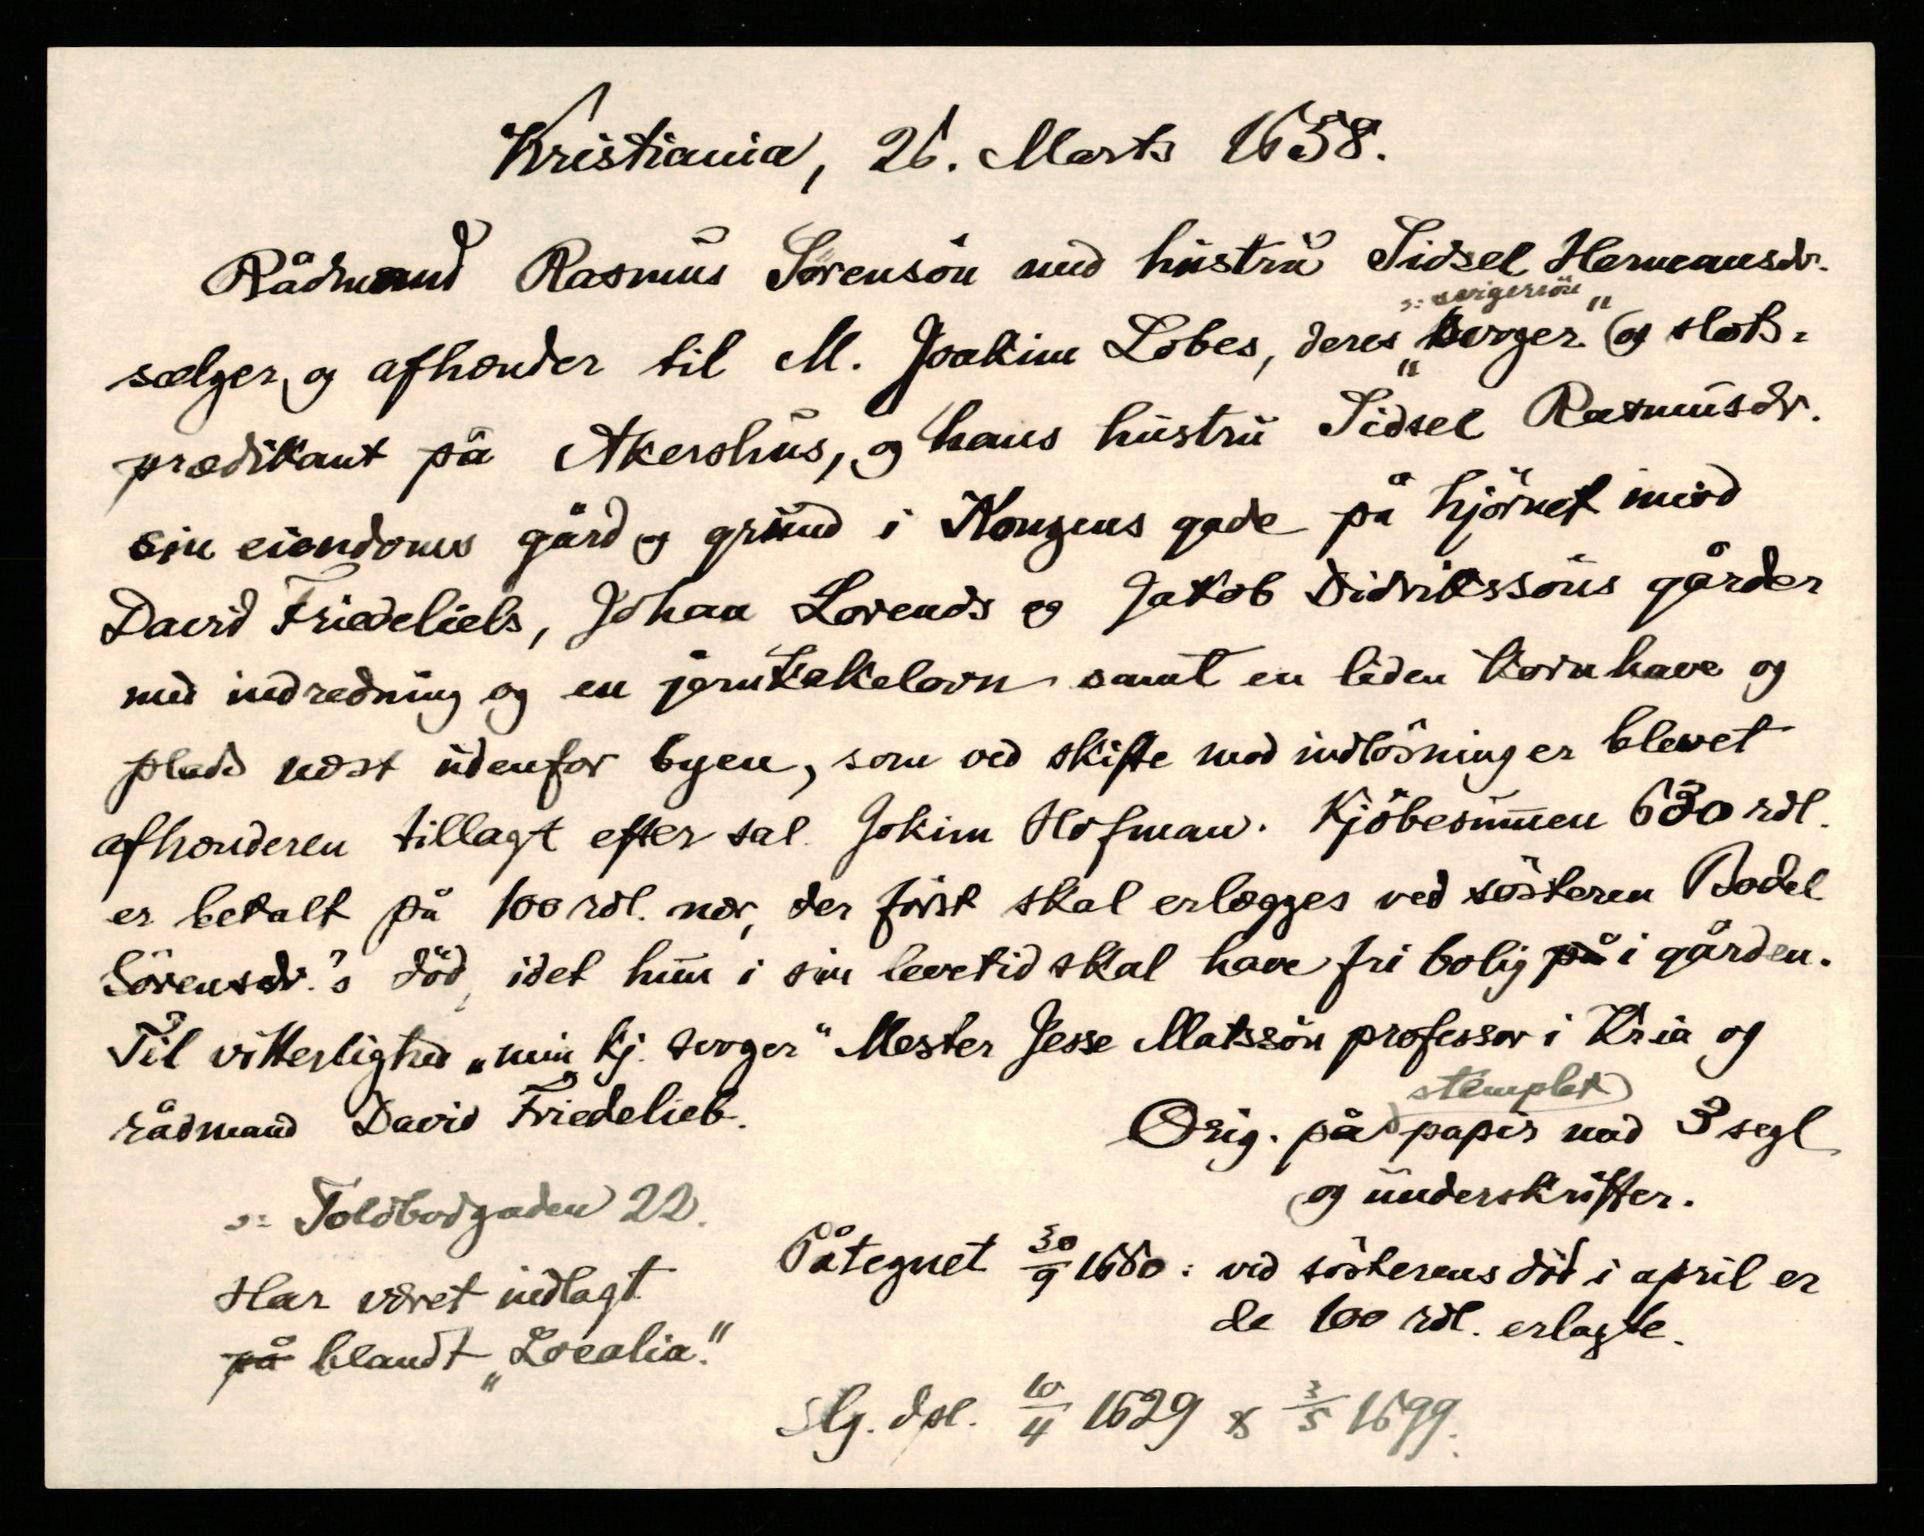 Kristiania, 26. Marts 1658.
Rådmand Rasmus Sørensön med hustru Sidsel Hermansdr.
ɔ: svigersön
sælger og afhænder til M. Joakim Lobes, deres „svoger“ og slots-
prædikant på Akershus, og hans hustru Sidsel Rasmusdr.
sin eiendoms gård og grund i Kongens gade på hjörnet imod
David Friedeliebs, Johan Lorends og Jakob Didrikssöns gårder
med indredning og en jernkakelovn samt en liden kornhave og
plads næst udenfor byen, som ved skifte mod indlösning er blevet
afhænderen tillagt efter sal. Jokim Hofman. Kjöbesummen 630 rdl.
er betalt på 100 rdl. nær, der först skal erlægges ved sösteren Bodel
Sörensdr.'s död, idet hun i sin levetid skal have fri bolig på i gården.
Til vitterlighed „min kj. svoger“ Mester Jesse Matssön professor i Kria og
rådmand David Friedelieb.
stemplet
Orig. på papir med 3 segl
og underskrifter.
ɔ: Toldbodgaden 22.
Påtegnet 30/9 1660: ved sösterens död i april er
de 100 rdl. erlagte.
Har været indlagt
på blandt „Localia“.
Slg. dpl. 10/4 1629 & 3/5 1699.